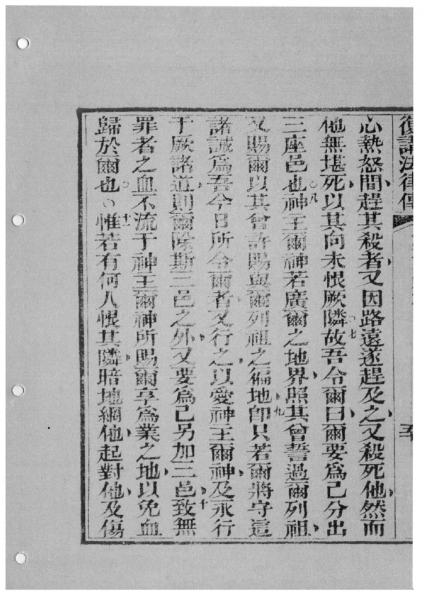 復講法律傳
心熱怒間趕其殺者又因路遠遂趕及之又殺死他然而
他無堪死以其向未恨厥隣故吾令爾曰爾要為己分出
三座邑也神王爾神若廣爾之地界照其曾誓過爾列祖
又賜爾以其曾許賜與爾列祖之徧地即只若爾將守這
諸誡為吾今日所令爾者又行之以愛神王爾神及永行
于厥諸道則爾除斯三邑之外又要為己另加三邑致無
罪者之血不流于神王爾神所賜爾享為業之地以免血
歸於爾也〇惟若有何人恨其隣暗地網他起對他及傷